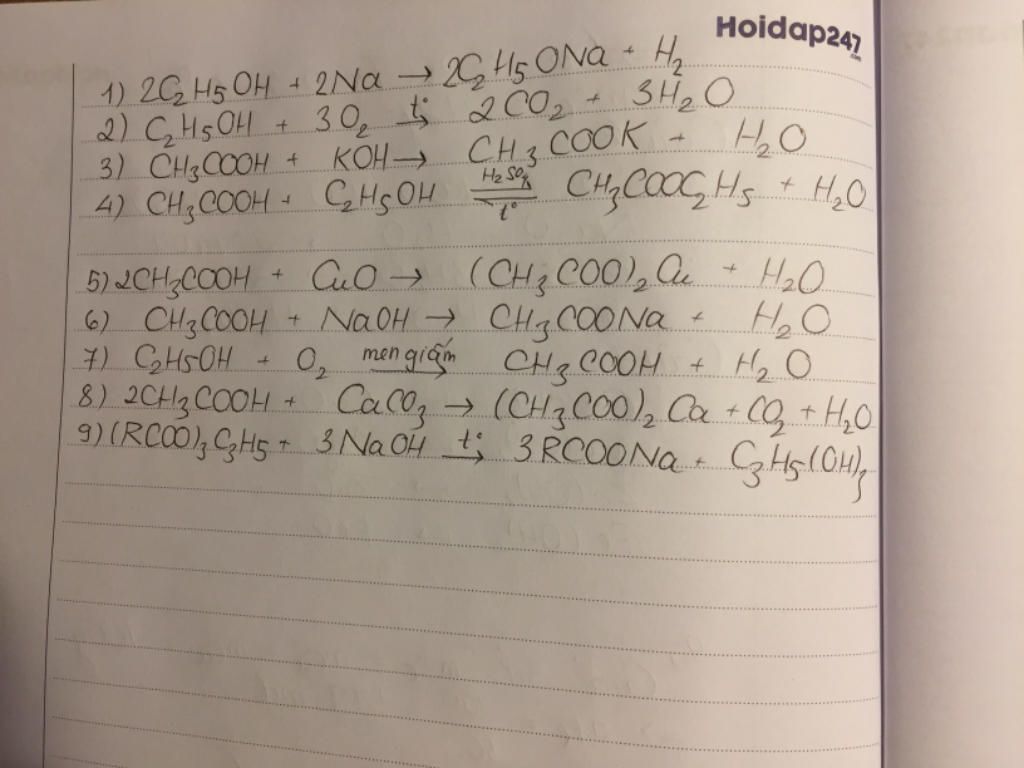 Hoidap247
.com
1) 2C₂H₅OH + 2Na → 2C₂H₅ONa + H₂
2) C₂H₅OH + 3O₂ t° → 2CO₂ + 3H₂O
3) CH₃COOH + KOH → CH₃COOK + H₂O
4) CH₃COOH + C₂H₅OH H₂SO₄ t° CH₃COOC₂H₅ + H₂O
5) 2CH₃COOH + CuO → (CH₃COO)₂Cu + H₂O
6) CH₃COOH + NaOH → CH₃COONa + H₂O
7) C₂H₅OH + O₂ men giấm → CH₃COOH + H₂O
8) 2CH₃COOH + CaCO₃ → (CH₃COO)₂Ca + CO₂ + H₂O
9) (RCOO)₃C₃H₅ + 3NaOH t° → 3RCOONa + C₃H₅(OH)₃